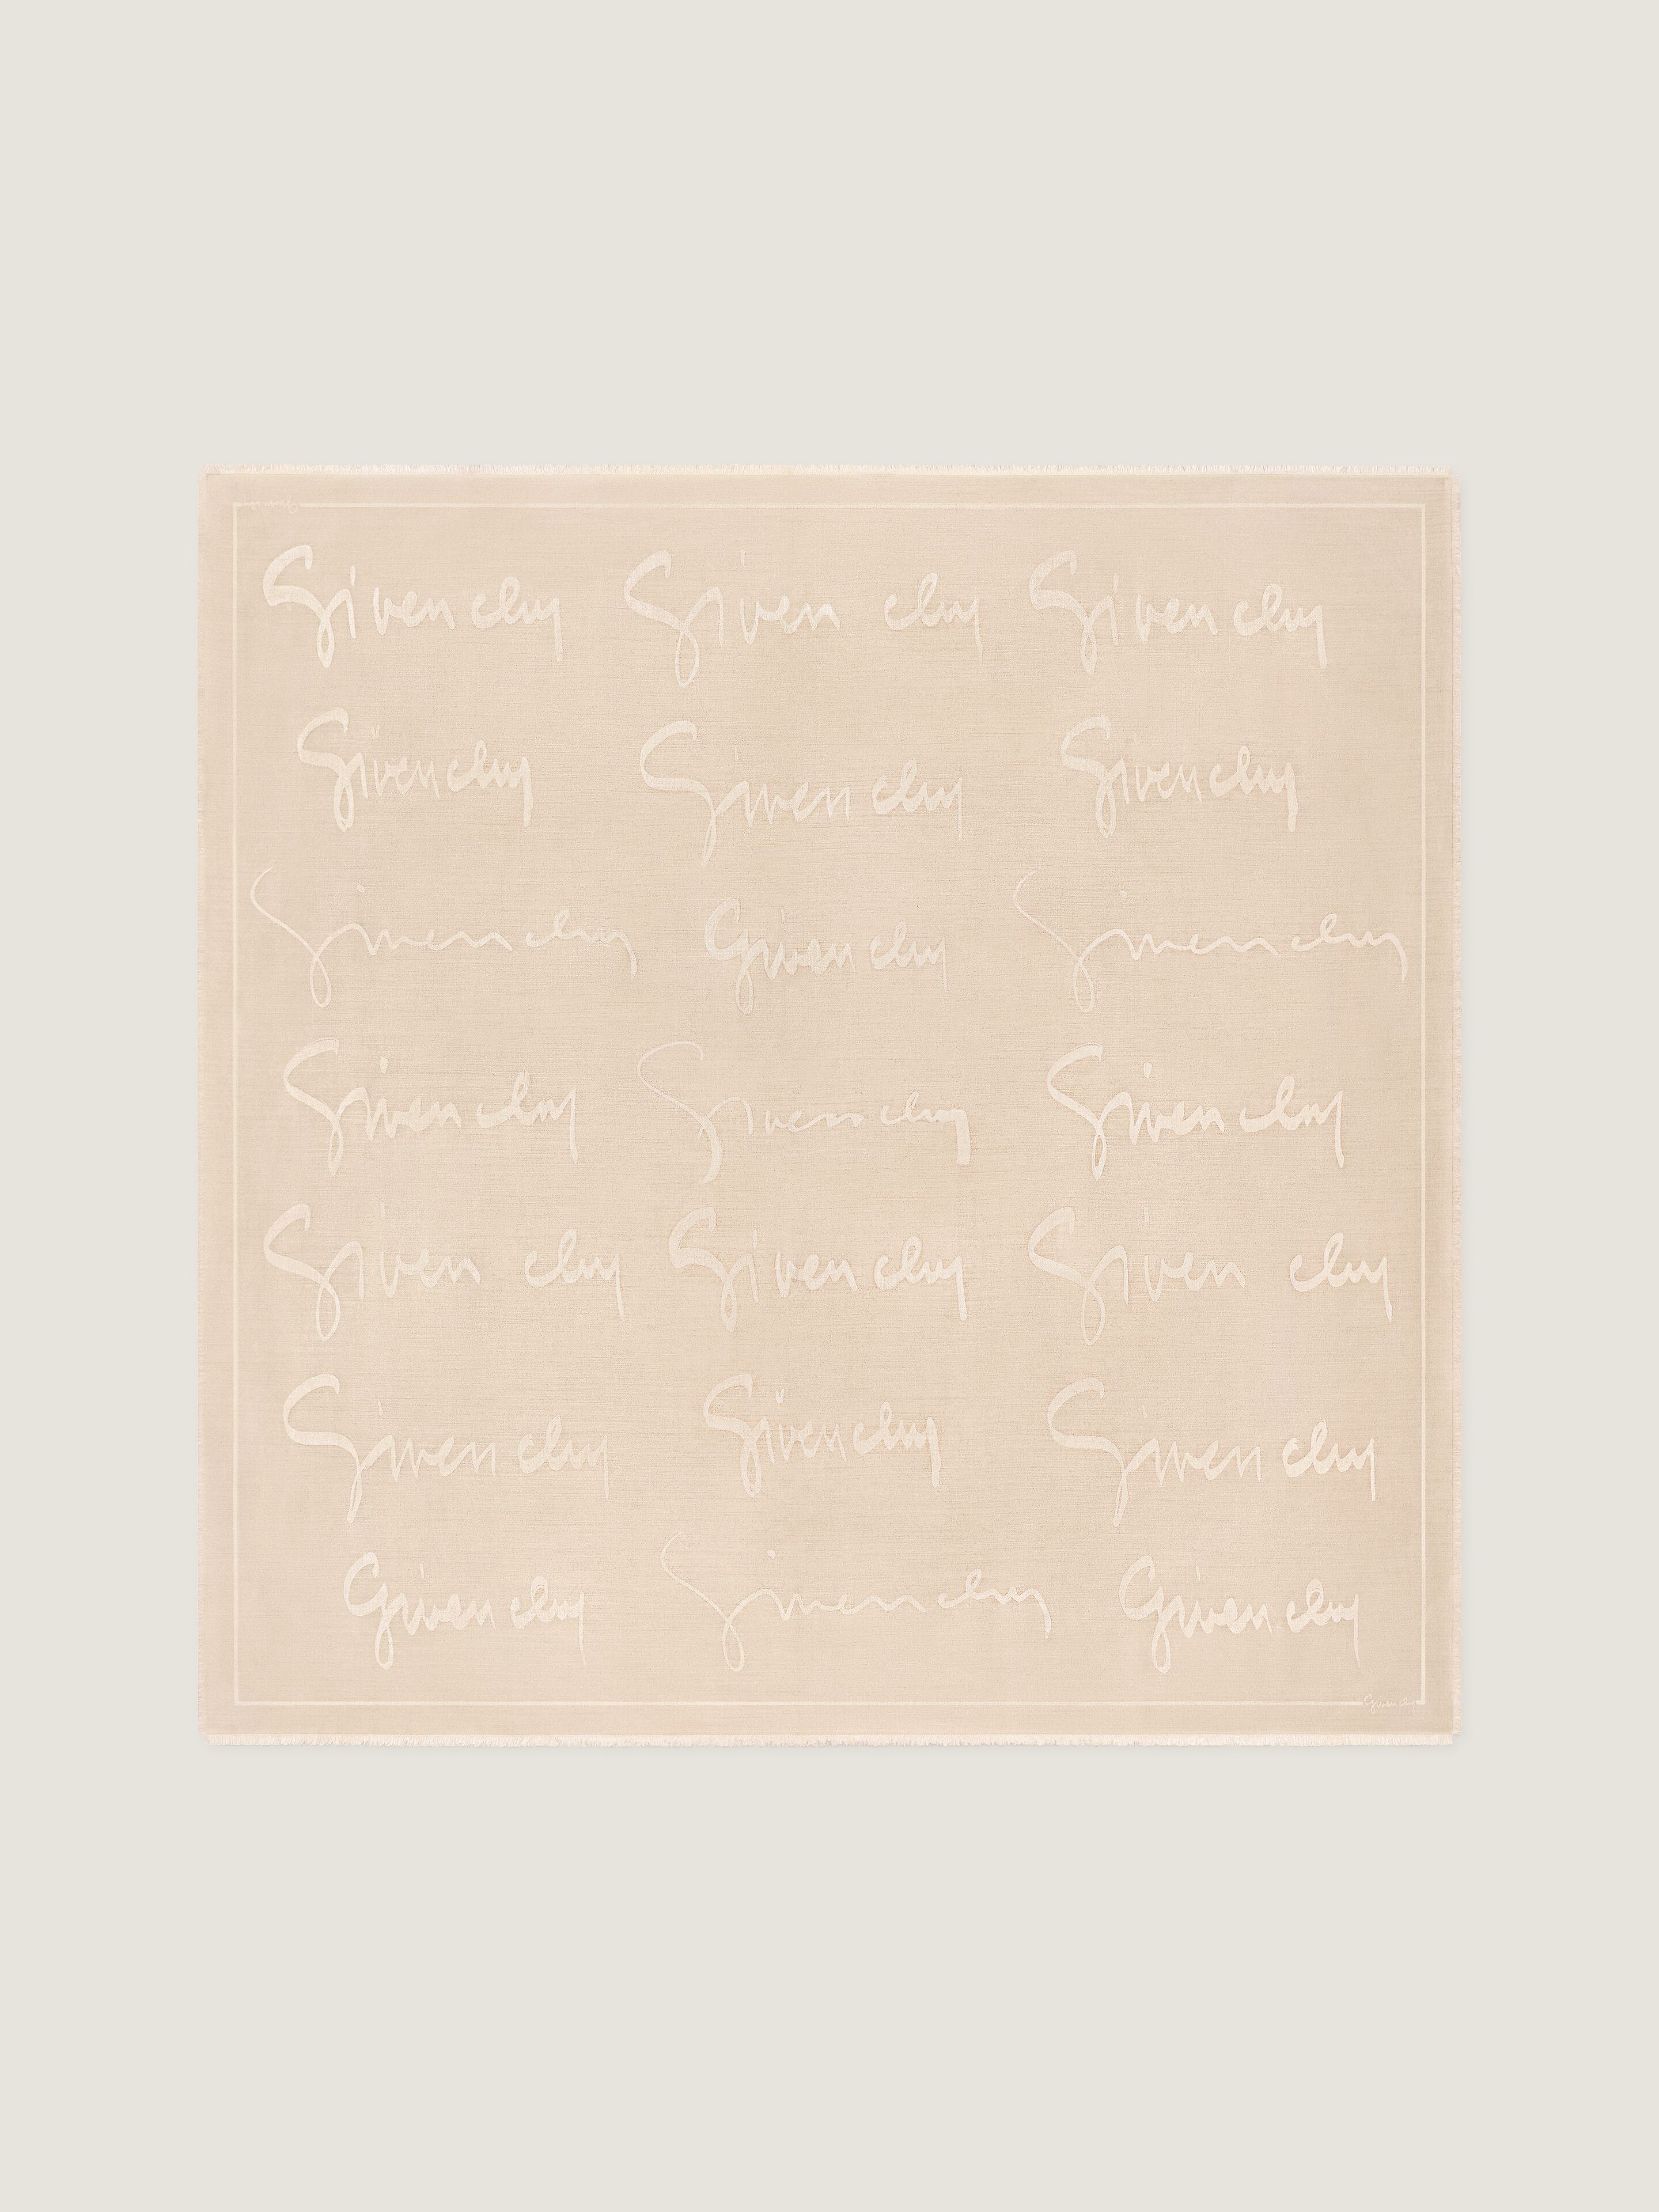 Givenchy
Givenchy Givenchy Givenchy
Givenchy Givenchy Givenchy
Givenchy Givenchy Givenchy
Givenchy Givenchy Givenchy
Givenchy Givenchy Givenchy
Givenchy Givenchy Givenchy
Givenchy Givenchy Givenchy
Givenchy